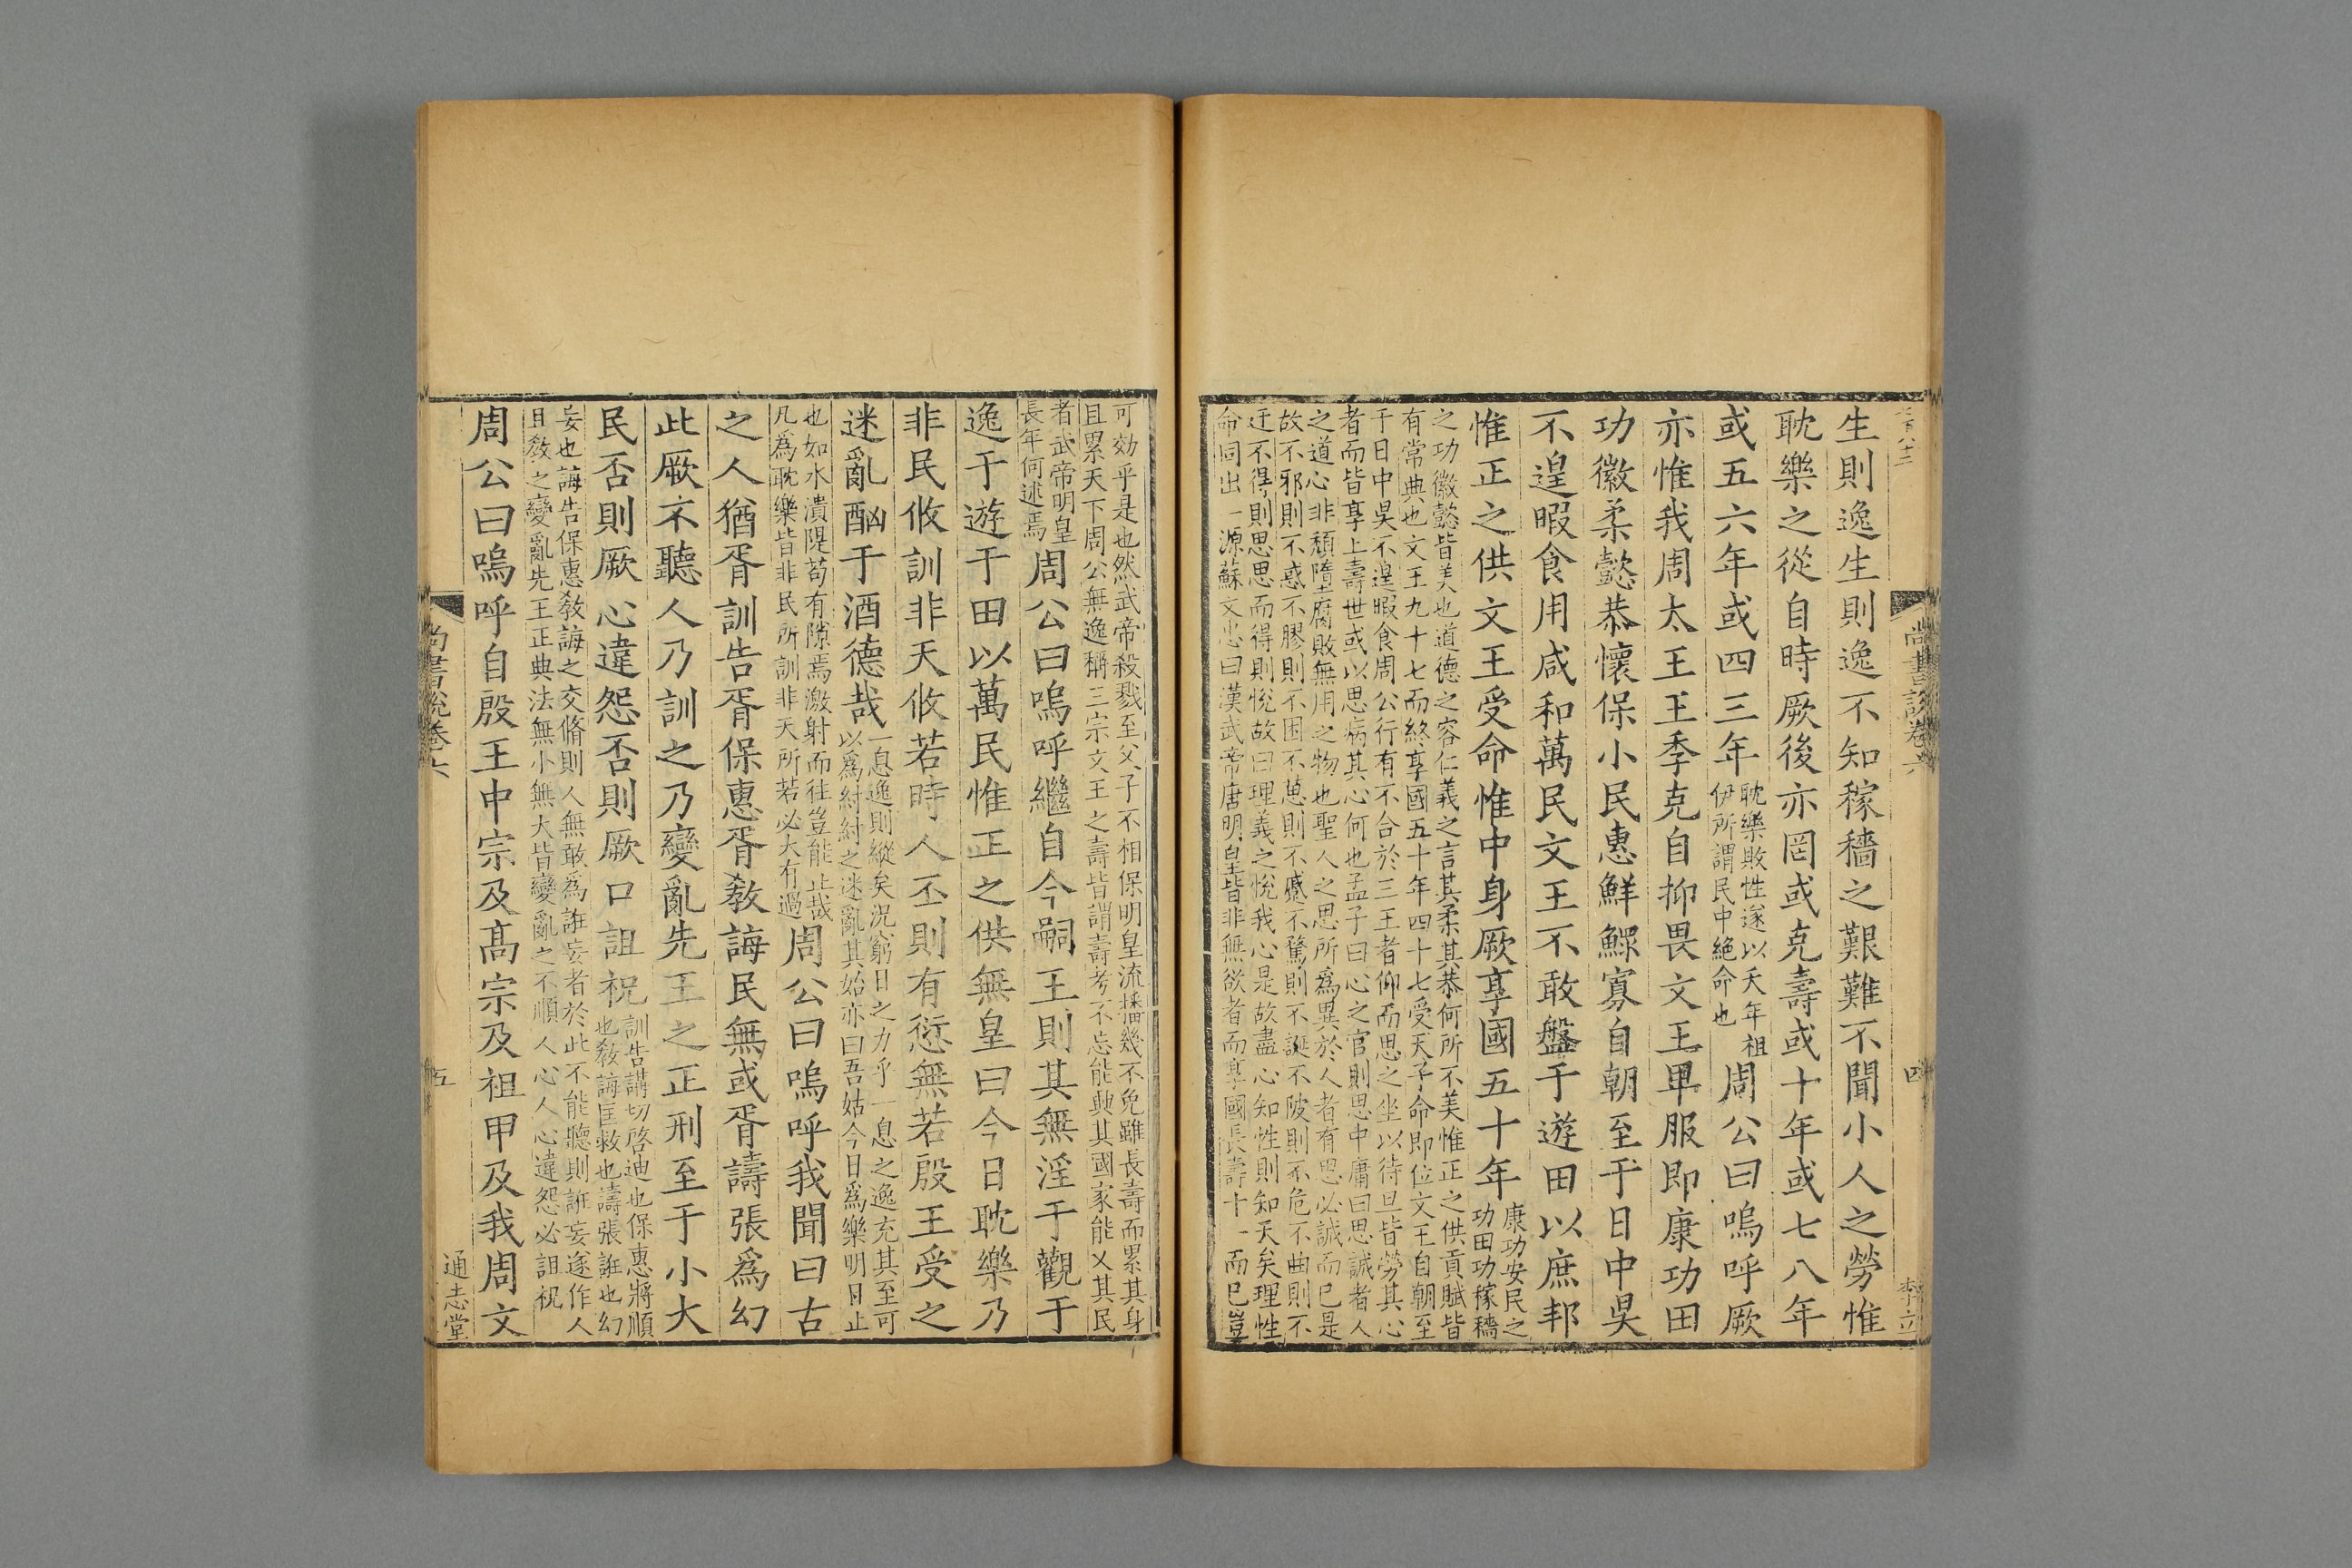 生則逸生則逸不知稼穡之艱難不聞小人之勞惟
耽樂之從自時厥後亦罔或克壽或十年或七八年
或五六年或四三年
耽樂敗性遂以夭年祖
伊所謂民中絕命也
周公曰嗚呼厥
亦惟我周太王王季克自抑畏文王卑服即康功田
功徽柔懿恭懷保小民惠鮮鰥寡自朝至于日中昃
不遑暇食用咸和萬民文王不敢盤于遊田以庶邦
惟正之供文王受命惟中身厥享國五十年
康功安民之
功田功稼穡
之功徽懿皆美也道德之容仁義之言其柔其恭何所不美惟正之供貢賦皆
有常典也文王九十七而終享國五十年四十七受天子命即位文王自朝至
于日中昃不遑暇食周公行有不合於三王者仰而思之坐以待旦皆勞其心
者而皆享上壽世或以思病其心何也孟子曰心之官則思中庸曰思誠者人
之道心非頹墮腐敗無用之物也聖人之思所爲異於人者有思必誠而已是
故不邪則不惑不膠則不困不葸則不慼不驚則不誕不陂則不危不曲則不
迂不得則思思而得則悅故曰理義之悅我心是故盡心知性則知天矣理性
命同出一源蘇文忠曰漢武帝唐明皇皆非無欲者而享國長壽十一而已豈
尚書說卷六
四
李立
可効乎是也然武帝殺戮至父子不相保明皇流播幾不免雖長壽而累其身
且累天下周公無逸稱三宗文王之壽皆謂壽考不忘能典其國家能乂其民
者武帝明皇
長年何述焉
周公曰嗚呼繼自今嗣王則其無淫于觀于
逸于遊于田以萬民惟正之供無皇曰今日耽樂乃
非民攸訓非天攸若時人丕則有愆無若殷王受之
迷亂酗于酒德哉
一息逸則縱矣況窮日之力乎一息之逸充其至可
以爲紂紂之迷亂其始亦曰吾姑今日爲樂明日止
也如水潰隄茍有隙焉激射而往豈能止哉
凡爲耽樂皆非民所訓非天所若必大有過
周公曰嗚呼我聞曰古
之人猶胥訓告胥保惠胥敎誨民無或胥譸張爲幻
此厥不聽人乃訓之乃變亂先王之正刑至于小大
民否則厥心違怨否則厥口詛祝
訓告講切啓迪也保惠將順
也敎誨匡救也譸張誑也幻
妄也誨告保惠敎誨之交脩則人無敢爲誑妄者於此不能聽則誑妄遂作人
且敎之變亂先王正典法無小無大皆變亂之不順人心人心違怨必詛祝
周公曰嗚呼自殷王中宗及高宗及祖甲及我周文
尚書說卷六
五
通志堂